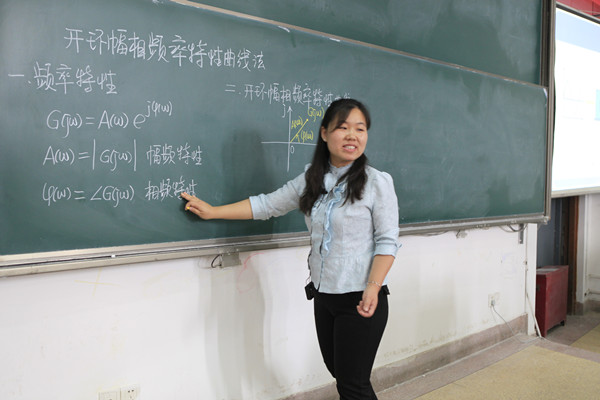 开环幅相频率特性曲线法
一.频率特性
G(jω)=A(ω)e^{jφ(ω)}
A(ω)=|G(jω)| 幅频特性
φ(ω)=∠G(jω) 相频特性
二.开环幅相频率特性
j
G(jω)
A(ω)
φ(ω)
0